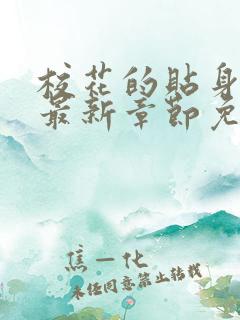 校花的贴身
最新章节免
焦一化
未经同意禁止转载